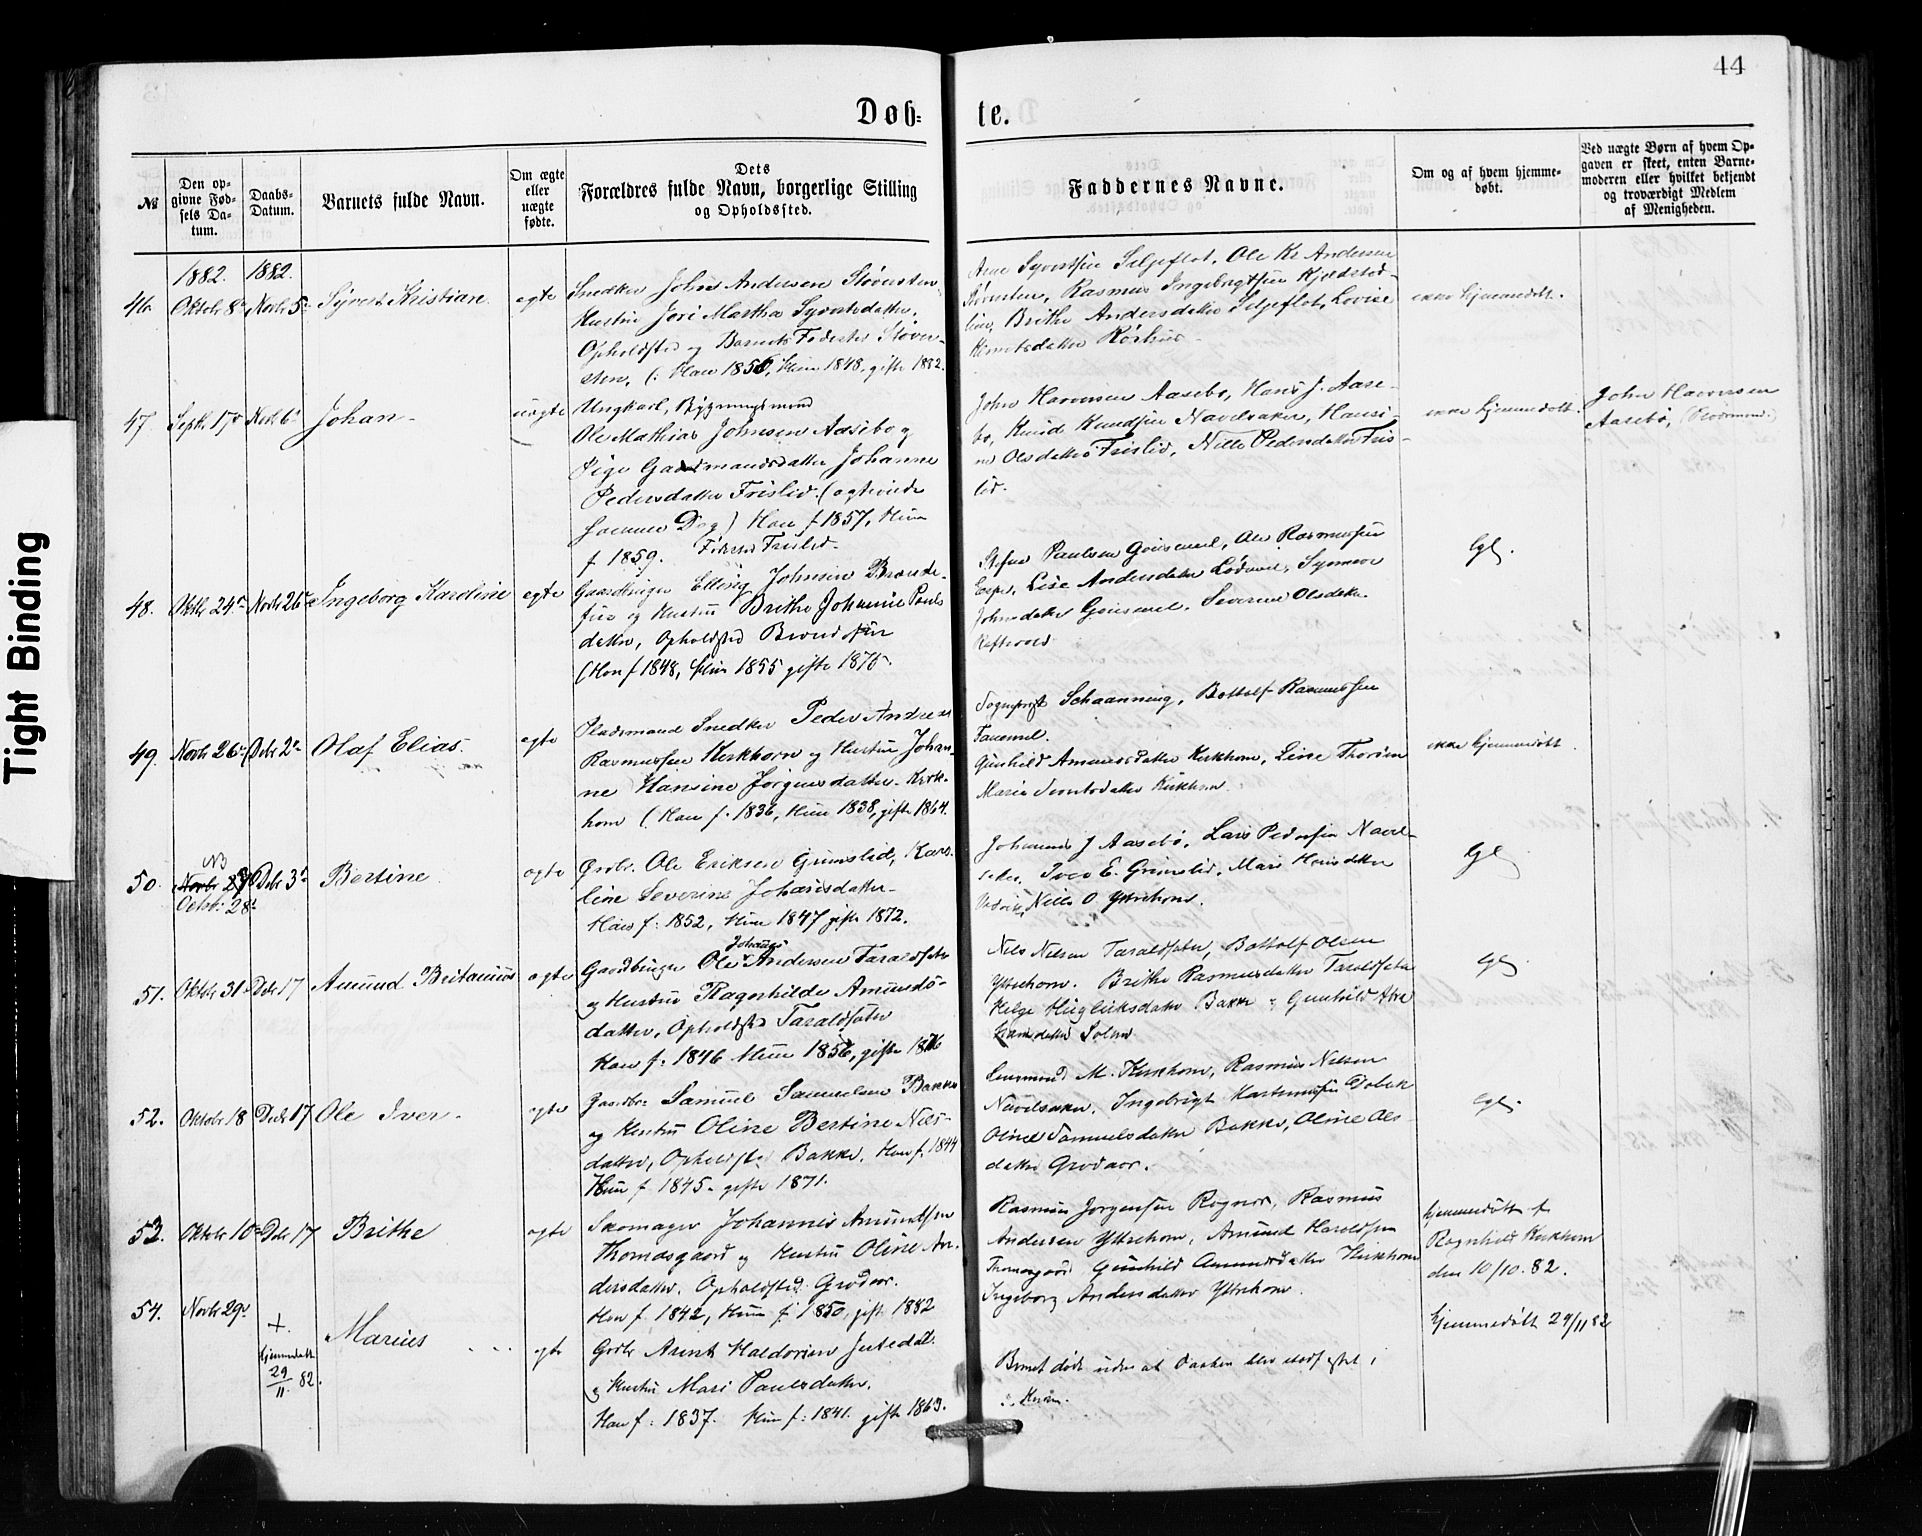 44
Døb=
te.
№
Den op-
givne Fød-
sels Da-
tum.
Daabs-
Datum.
Barnets fulde Navn.
Om ægte
eller
uægte
fødte.
Dets
Forældres fulde Navn, borgerlige Stilling
og Opholdssted.
Faddernes Navne.
Om og af hvem hjemme-
døbt.
Ved uægte Børn af hvem Op-
gaven er skeet, enten Barne-
moderen eller hvilket bekjendt
og troværdigt Medlem
af Menigheden.
1882. 1882.
46. Oktobr 8de Novbr 5te Syvert Kristian egte
Snedker John Andersen Støversten,
Hustru Jori Martha Syvertsdatter,
Opholdsted og Barnets Fødested Støver-
sten, (: Han 1856, Hun 1848, gifte 1882.
Arne Syvertsen Seljeflot, Ole Kr Andersen
Støversten, Rasmus Ingebrigtsen Kjeldstad-
lien, Brithe Andersdatter Seljeflot, Lovise
Rørhus
ikke hjemmedøbt.
47. Septbr 17de Novbr 6te Johan uegte
Ungkarl, Bygningsmand
Ole Mathias Johnsen Aasebø og
Pige Gaardmandsdatter Johanne
Pedersdatter Frislid. (
samme Dag) Han f 1857, Hun
f 1859. Frislid.
John Haversen Aasebø, Hans J. Aase-
bø, Knud Knudsen Navelsaker, Hansi-
ne Olsdatter Frislid, Nille Pedersdatter Fris-
lid.
ikke hjemmedøbt.
John Haversen
Aasebø,
48. Oktbr 24de Novbr 26de Ingeborg Karoline egte
Gaardbruger Elling Johnsen Brande-
og Hustru Brithe Johanne Pauls
datter, Opholdsted
(Han f 1848, Hun 1855 gifte 1875.
Stefen Paulsen Gausemel, Ole Rasmussen
Espe, Lise Andersdatter Synneve
Johnsdatter Gausemel, Severine Olsdatter
Heftevold
Lgl.
49. Novbr 26de Debr 2de Olaf Elias. egte
Pladsmand Snedker Peder Andreas
Rasmussen Kirkhorn og Hustru Johan-
ne Hansine Jørgensdatter Kirk-
horn (Han f. 1836, Hun 1838, gifte 1864.
Sogneprest Schaanning, Bottolf Rasmussen
Faremel.
Gunhild Amundsdatter Kirkhorn, Lise Thorsen
Marie Kirkhorn
ikke hjemmedøbt.
NB
50. Novbr 27 Debr 3de Bertine. egte
Octob: 28de
Grdbr. Ole Eriksen Grimslid, Karo-
line Severine Johansdatter
Han f: 1852, Hun 1847 gifte 1872.
Johannes J Aasebø, Lars Pedersen Navel-
saker, Iver E. Grimslid, Mari Hansdatter
Nille O Yttrehorn.
Lgl
51. Oktobr 31 Debr 17 Amund Britanius egte
Johannes
Gaardbruger Ole Andersen Taraldsæter
og Hustru Ragnhilde Amunds-
datter, Opholdsted Taraldsæter
Han f: 1846 Hun 1856, gifte 1876
Nils Nilsen Taraldsæter, Bottolf Olsen
Yttrehorn. Brithe Rasmusdatter Taraldsæter
Helge Hugleiksdatter Bakke & Gunhild Abra
hamsdatter
Lgl
52. Oktobr 18 Debr 17 Ole Iver. egte
Gaardbr Samuel Samuelsen Bakke
og Hustru Oline Bertine Nils-
datter, Opholdsted Bakke. Han f. 1844
Hun f. 1845. gifte 1871.
Lensmand M. Kirkhorn, Rasmus Nilsen
Navelsaker, Ingebrigt
Oline Samuelsdatter Bakke, Oline Ols-
datter Grodaas.
Lgl.
53. Oktobr 10de Debr 17 Brithe egte
Skomager Johannes Amundsen
Thomasgaard og Hustru Oline An-
dersdatter. Opholdsted Grodaas.
Han f. 1842, Hun f. 1850, gift 1882
Rasmus Jørgensen Rognes, Rasmus
Andersen Yttrehorn, Amund Haraldsen
Thomasgaard Gunhild Amundsdatter Kirkhorn
Ingeborg Andersdatter Yttrehorn.
hjemmedøbt af
Ragnhild Kirkhorn
den 10/10. 82.
54. Novbr 29de +. Marius egte
hjemmedøbt
29/11. 82.
Grdbr Arent Haldorsen Jutedal.
og Hustru Mari Paulsdatter.
Han f: 1837. Hun f: 1841. gifte 1863.
Barnet døde uden at Daaben blev stadfæstet i
Kirken.
hjemmedøbt 29/11 82
Tight Binding